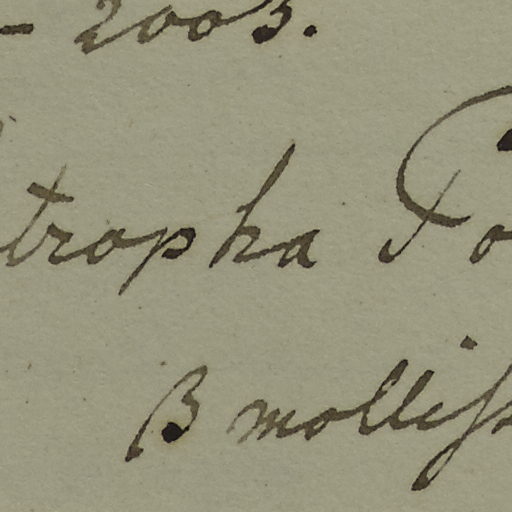 - 2003.
tropha Po
β molliſs